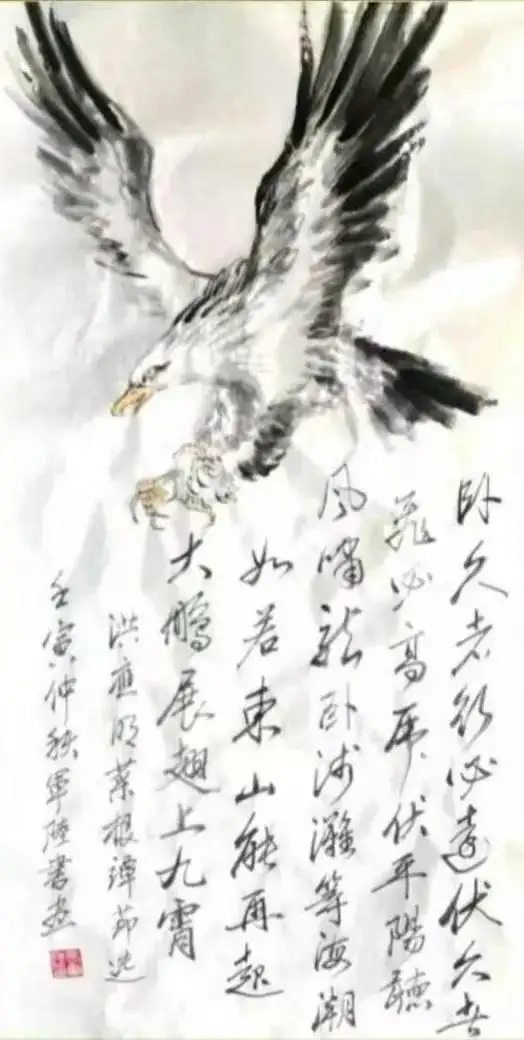 卧久者行必远伏久者
飛必高虎伏平陽聽
风啸龙卧浅灘等海潮
如若東山能再起
大鵬展翅上九霄
洪應明菜根譚節选
壬寅仲秋軍陸書画